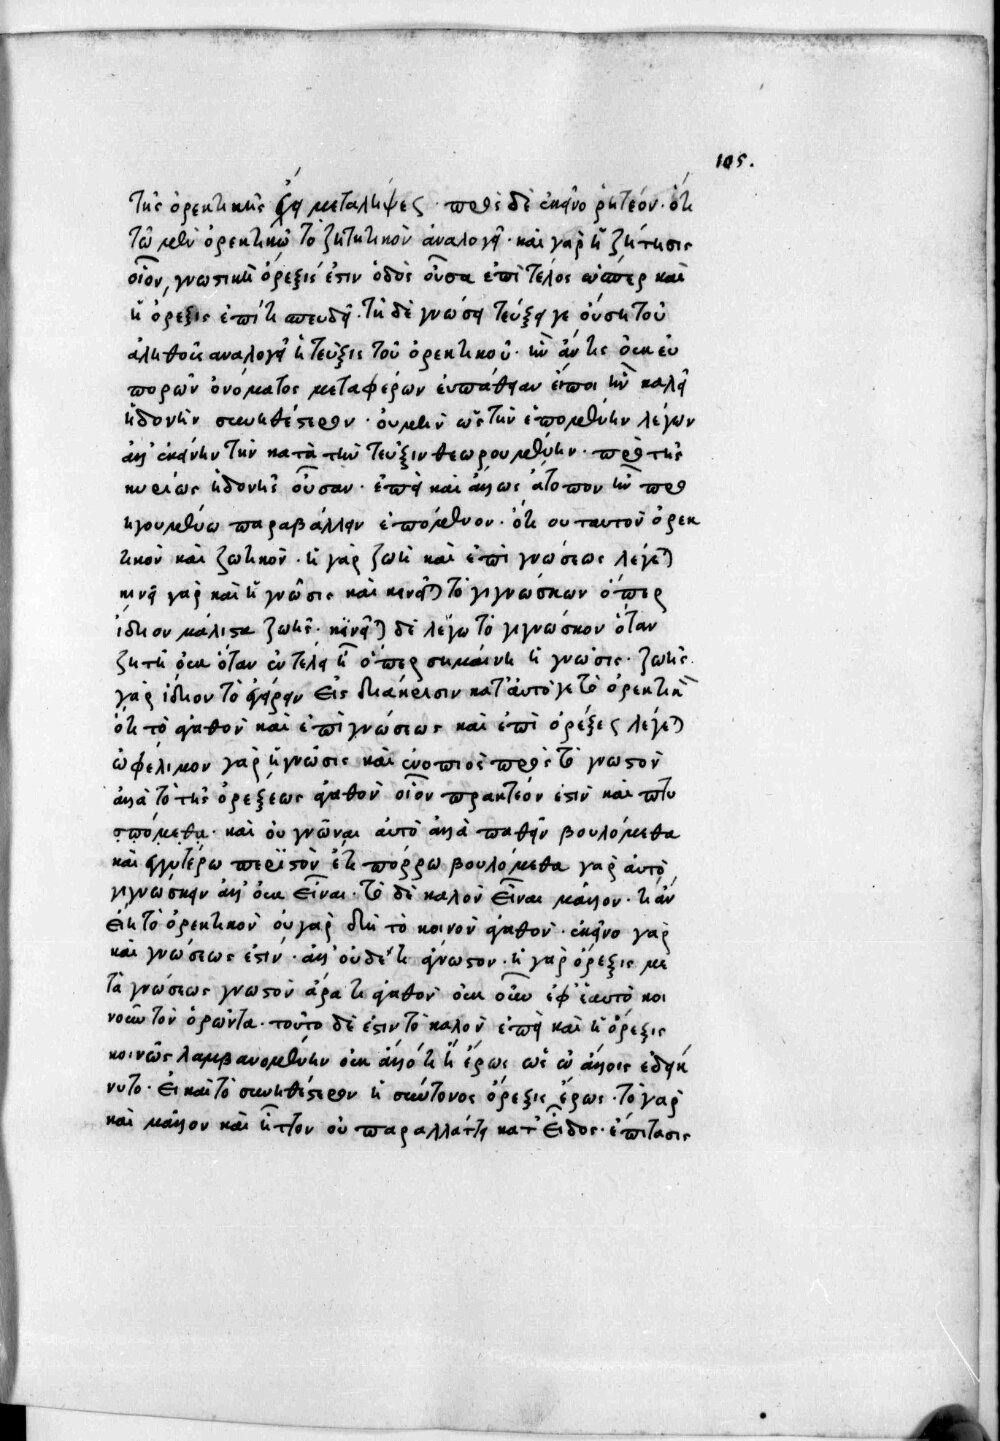 105.
τῆς ὀρεκτικῆς ἕξει μεταλήψες. πρὸς δὲ ἐκεῖνο ῥητέον. ὅτι
τῶ μὲν ὀρεκτικῶ τὸ ζητητικὸν ἀναλογεῖ. καὶ γὰρ ἡ ζήτησις
οἷον, γνωστικὴ ὄρεξις ἐστιν ὁδὸς οὖσα ἐπὶ τέλος ὥσπερ καὶ
ἡ ὄρεξις ἐπί τι σπευδει. τῆ δὲ γνώσει τεύξει γε οὔση τοῦ
ἀληθοῦς αναλογεῖ ἡ τεῦξις τοῦ ὀρεκτικοῦ. ἣν ἄν τις οὐκ εὐ
πορῶν ὀνόματος μεταφέρων εὐπάθειαν εἴποι ἢν καλεῖ
ἡδονὴν συνηθέστερον. οὐ μὲν ὡς τὴν ἑπομένην λέγων
ἀλλ' ἐκείνην τὴν κατὰ τὴν τεῦξιν θεωρουμένην. πρὸ τῆς
κυρίως ἡδονῆς οὖσαν. ἐπεὶ καὶ ἄλλως ἄτοπον ἦν προ
ηγουμένω παραβάλλειν ἑπόμενον. ὅτι ου ταυτὸν ὀρεκ
τικὸν καὶ ζωτικὸν. ἡ γὰρ ζωὴ καὶ ἐπὶ γνώσεως λέγεται
κινεῖ γαρ καὶ ἡ γνῶσις καὶ κινεῖται τὸ γιγνώσκων ὅπερ
ἴδιον μάλιστα ζωῆς. κινεῖται δὲ λέγω τὸ γιγνώσκον ὅταν
ζητῆ οὐκ ὅταν ἐν τέλει ἦ ὅπερ σημαίνει ἡ γνῶσις. ζωῆς
γὰρ ἴδιον τὸ ἐγείρειν εἰς διάκρισιν κατ' αὐτό γε τὸ ὀρεκτικὸν
ὅτι τὸ ἀγαθὸν καὶ ἐπὶ γνώσεως καὶ ἐπὶ ὀρέξες λέγεται
ὠφέλιμον γαρ ἡ γνῶσις καὶ ἑνοποιὸς πρὸς τὸ γνωστὸν
ἀλλὰ τὸ τῆς ὀρέξεως ἀγαθὸν οἷον πρακτέον ἐστὶν καὶ
καὶ οὐ γνῶναι αὐτὸ ἀλλὰ παθεῖν βουλόμεθα
καὶ ἐγγυτέρω περϊστὸν ἔτι πόρρω βουλόμεθα γαρ αὐτὸ
γιγνώσκειν ἀλλ' οὐκ εἶναι. τὸ δὲ καλὸν εἶναι μᾶλλον. τί ἂν
εἴη τὸ ὀρεκτικὸν οὐ γαρ δὴ τὸ κοινὸν ἀγαθὸν. ἐκεῖνο γαρ
καὶ γνώσεως ἐστίν. ἀλλ' οὐδέ τι ἄγνωστον. ἡ γὰρ ὄρεξις με
τὰ γνώσεως γνωστὸν ἄρα τι ἀγαθὸν οὐκ οὖν ἐφ' ἑαυτὸ κοι
νοῦν τὸν ὁρῶντα. τοῦτο δέ ἐστιν τὸ καλὸν ἐπεὶ καὶ ἡ ὄρεξις
κοινῶς λαμβανομένη οὐκ ἄλλό τι ἢ ἔρως ὡς ἐν ἄλλοις ἐδείκ
νυτο. εἰ καὶ τὸ συνηθέστερον ἡ σύντονος ὄρεξις ἔρως. τὸ γαρ
καὶ μᾶλλον καὶ ἧττον οὐ παραλλάττει κατ' εἶδος. ἐπίτασις